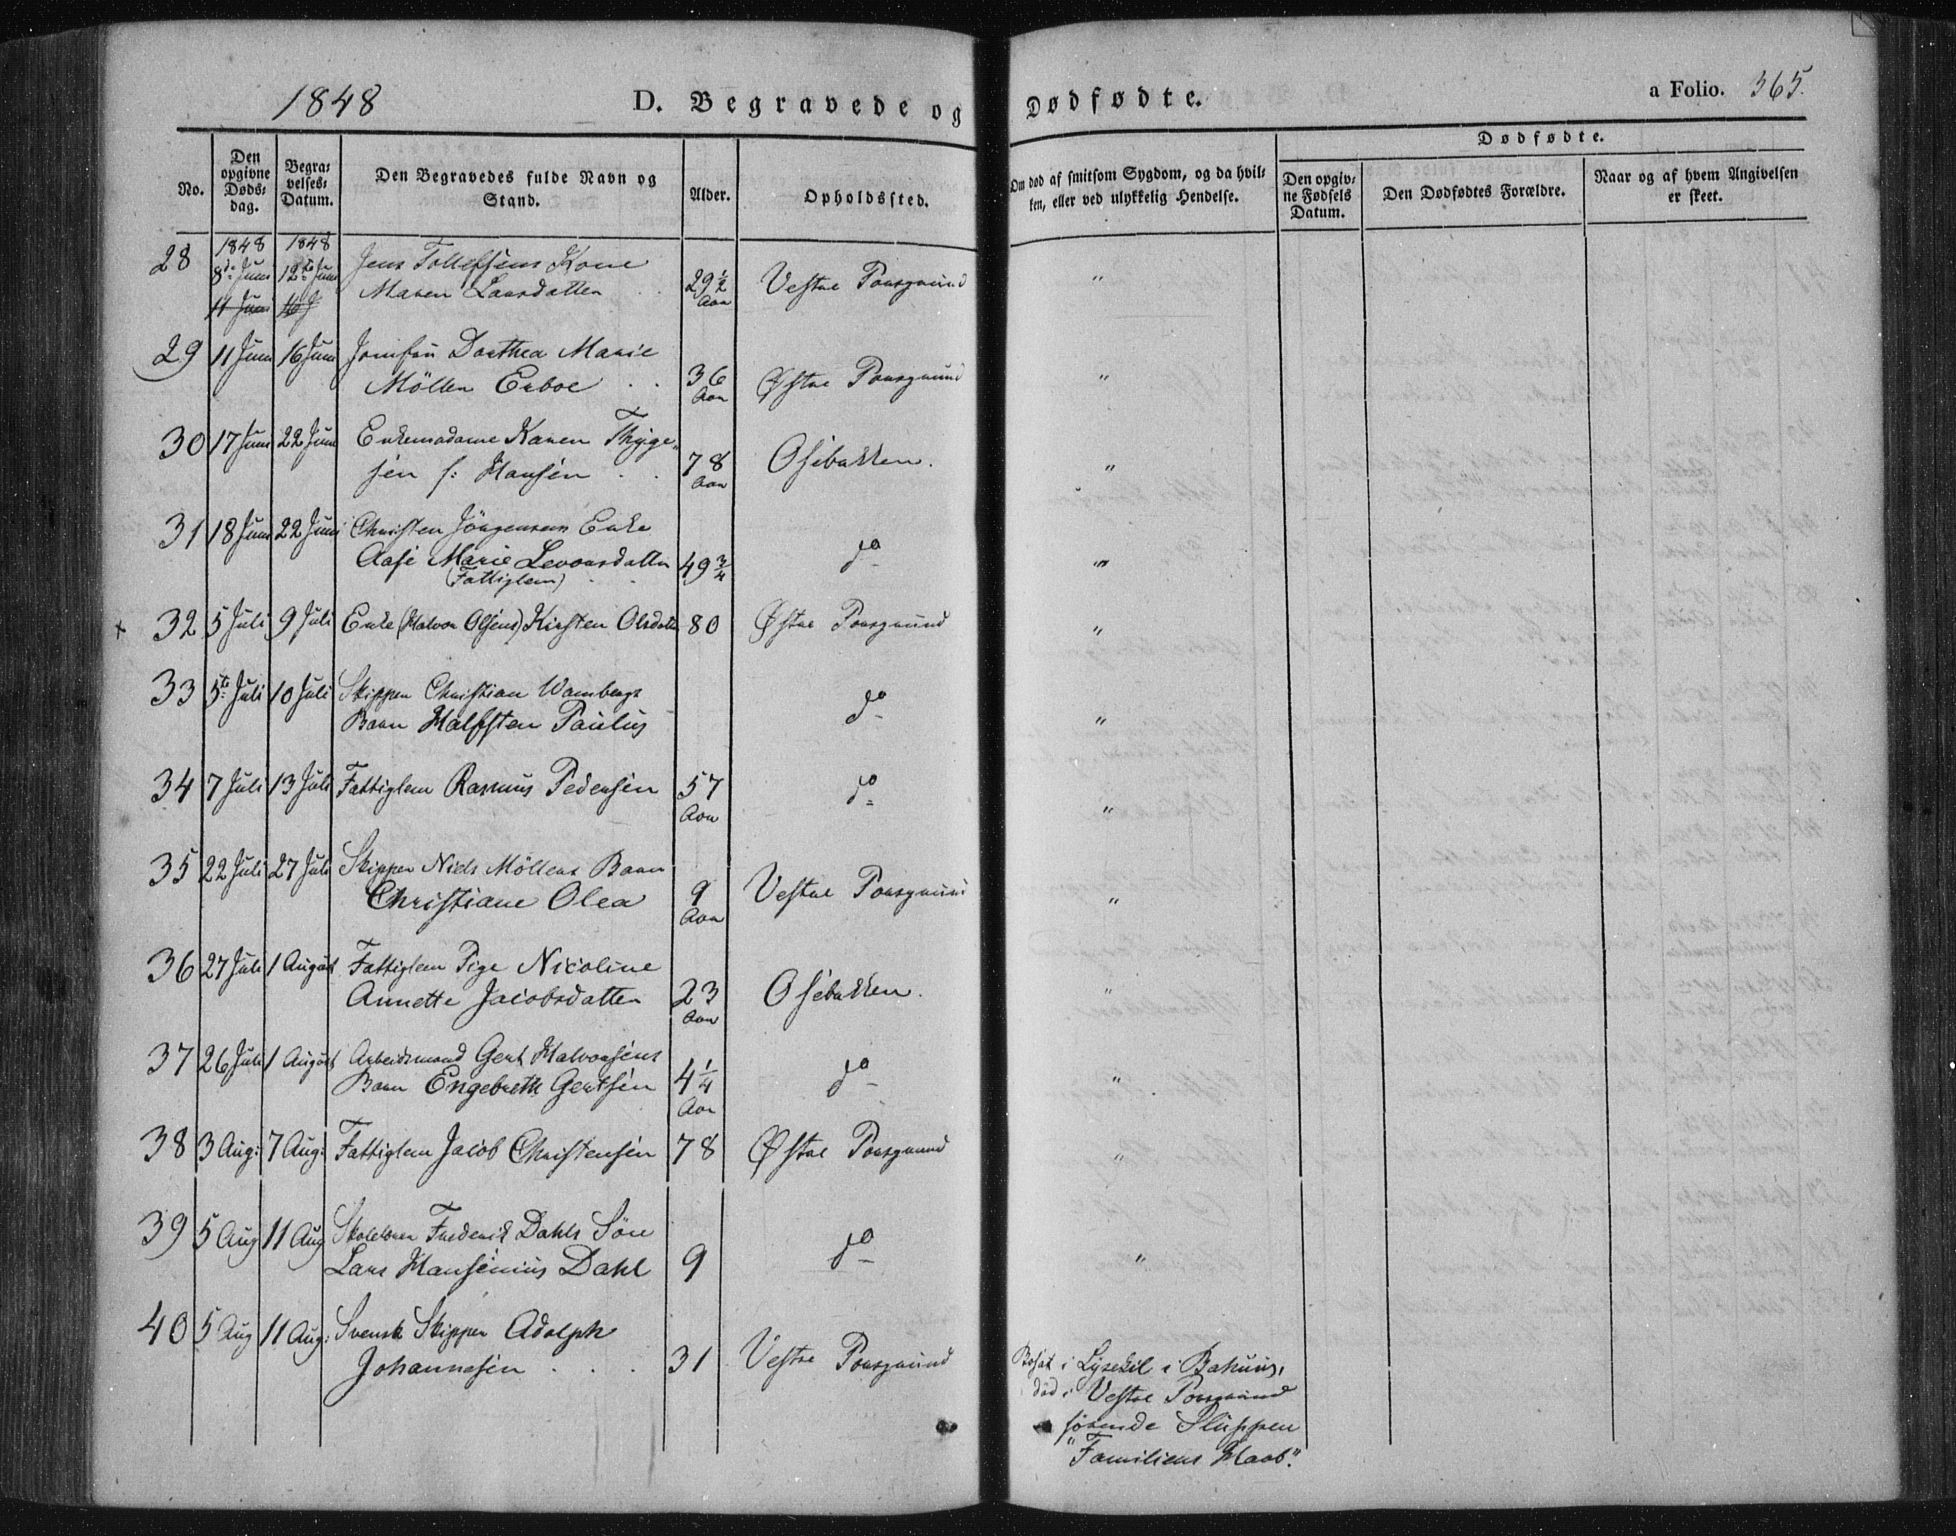 1848
D. Begravede og Dødfødte.
a Folio. 365.
No.
Den opgivne Døds-dag.
Begra-velses-Datum.
Den Begravedes fulde Navn og Stand.
Alder.
Opholdssted.
Om død af smitsom Sygdom, og da hvil-
ken, eller ved ulykkelig Hendelse.
Dødfødte.
Den opgiv-ne Fødsels Datum.
Den Dødfødtes Forældre.
Naar og af hvem Angivelsen er skeet.
1848 1848
28 8de Juni 12te Juni Jens Tollefsens Kone
11 Juni 16 Maren Larsdatter 29 1/2 Aar Vestre Porsgrund "
29 11 Juni 16 Juni Jomfru Dorthea Marie
Möller Erboe 36 Aar Østre Porsgrund "
30 17 Juni 22 Juni Enkemadame Karen Thyge-
sen f: Hansen 78 Aar Osebakken. "
31 18 Juni 22 Juni Christen Jörgensens Enke
Aase Marie Levorsdatter 49 3/4 do "
(Fattiglem)
+ 32 5 Juli 9 Juli Enke (Halvor Olsens) Kirsten Olsdatter 80 Østre Porsgrund "
33 5te Juli 10 Juli Skipper Christian Wambergs
Barn Halfsten Paulus do "
34 7 Juli 13 Juli Fattiglem Rasmus Pedersen 57 Aar do "
35 22 Juli 27 Juli Skipper Niels Möllers Barn
Christiane Olea 9 Aar Vestre Porsgrund "
36 27 Juli 1 August Fattiglem Pige Nicoline
Annette Jacobsdatter 23 Aar Osebakken. "
37 26 Juli 1 August Arbeidsmand Gert Halvorsens
Barn Engebreth Gertsen 4 1/4 Aar do "
38 3 Aug: 7 Aug: Fattiglem Jacob Christensen 78 Østre Porsgrund "
39 5 Aug 11 Aug Frederik Dahls Sön
Lars Hansenius Dahl 9 do "
40 5 Aug 11 Aug: Svensk Skipper Adolph
Johannesen 31 Vestre Porsgrund
Bosat i Lysekil i Bahuus,
död i Vestre Porsgrund
förende Sluppen
"Familiens Haab".